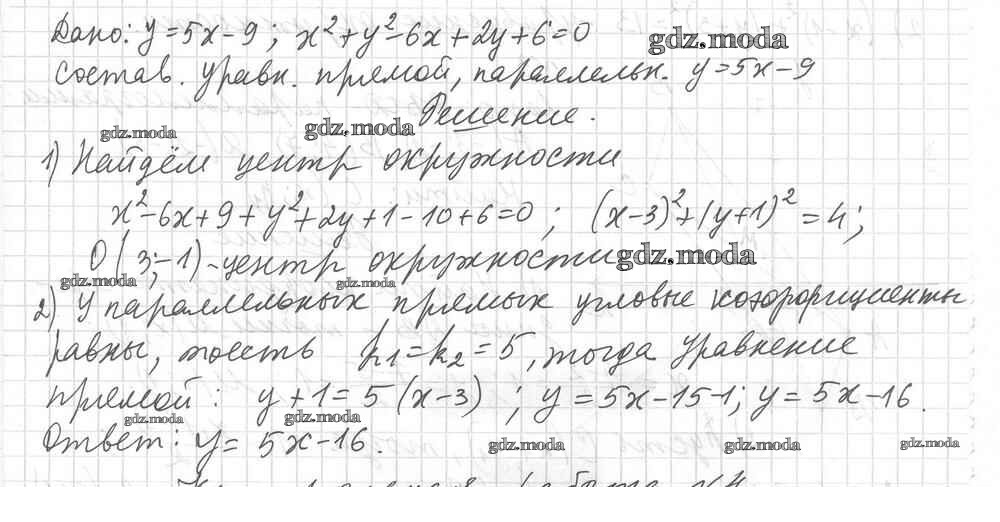 Дано: y=5x-9; x²+y²-6x+2y+6=0
gdz.moda
состав. уравн. прямой, параллельн. y=5x-9
Решение.
gdz.moda
gdz.moda
1) Найдём центр окружности
x²-6x+9+y²+2y+1-10+6=0; (x-3)²+(y+1)²=4;
O(3;-1)-центр окружности
gdz.moda
gdz.moda
gdz.moda
2) У параллельных прямых угловые коэффициенты
равны, то есть k₁=k₂=5, тогда уравнение
прямой: y+1=5(x-3); y=5x-15-1; y=5x-16.
gdz.moda
gdz.moda
Ответ: y=5x-16.
gdz.moda
gdz.moda
gdz.moda